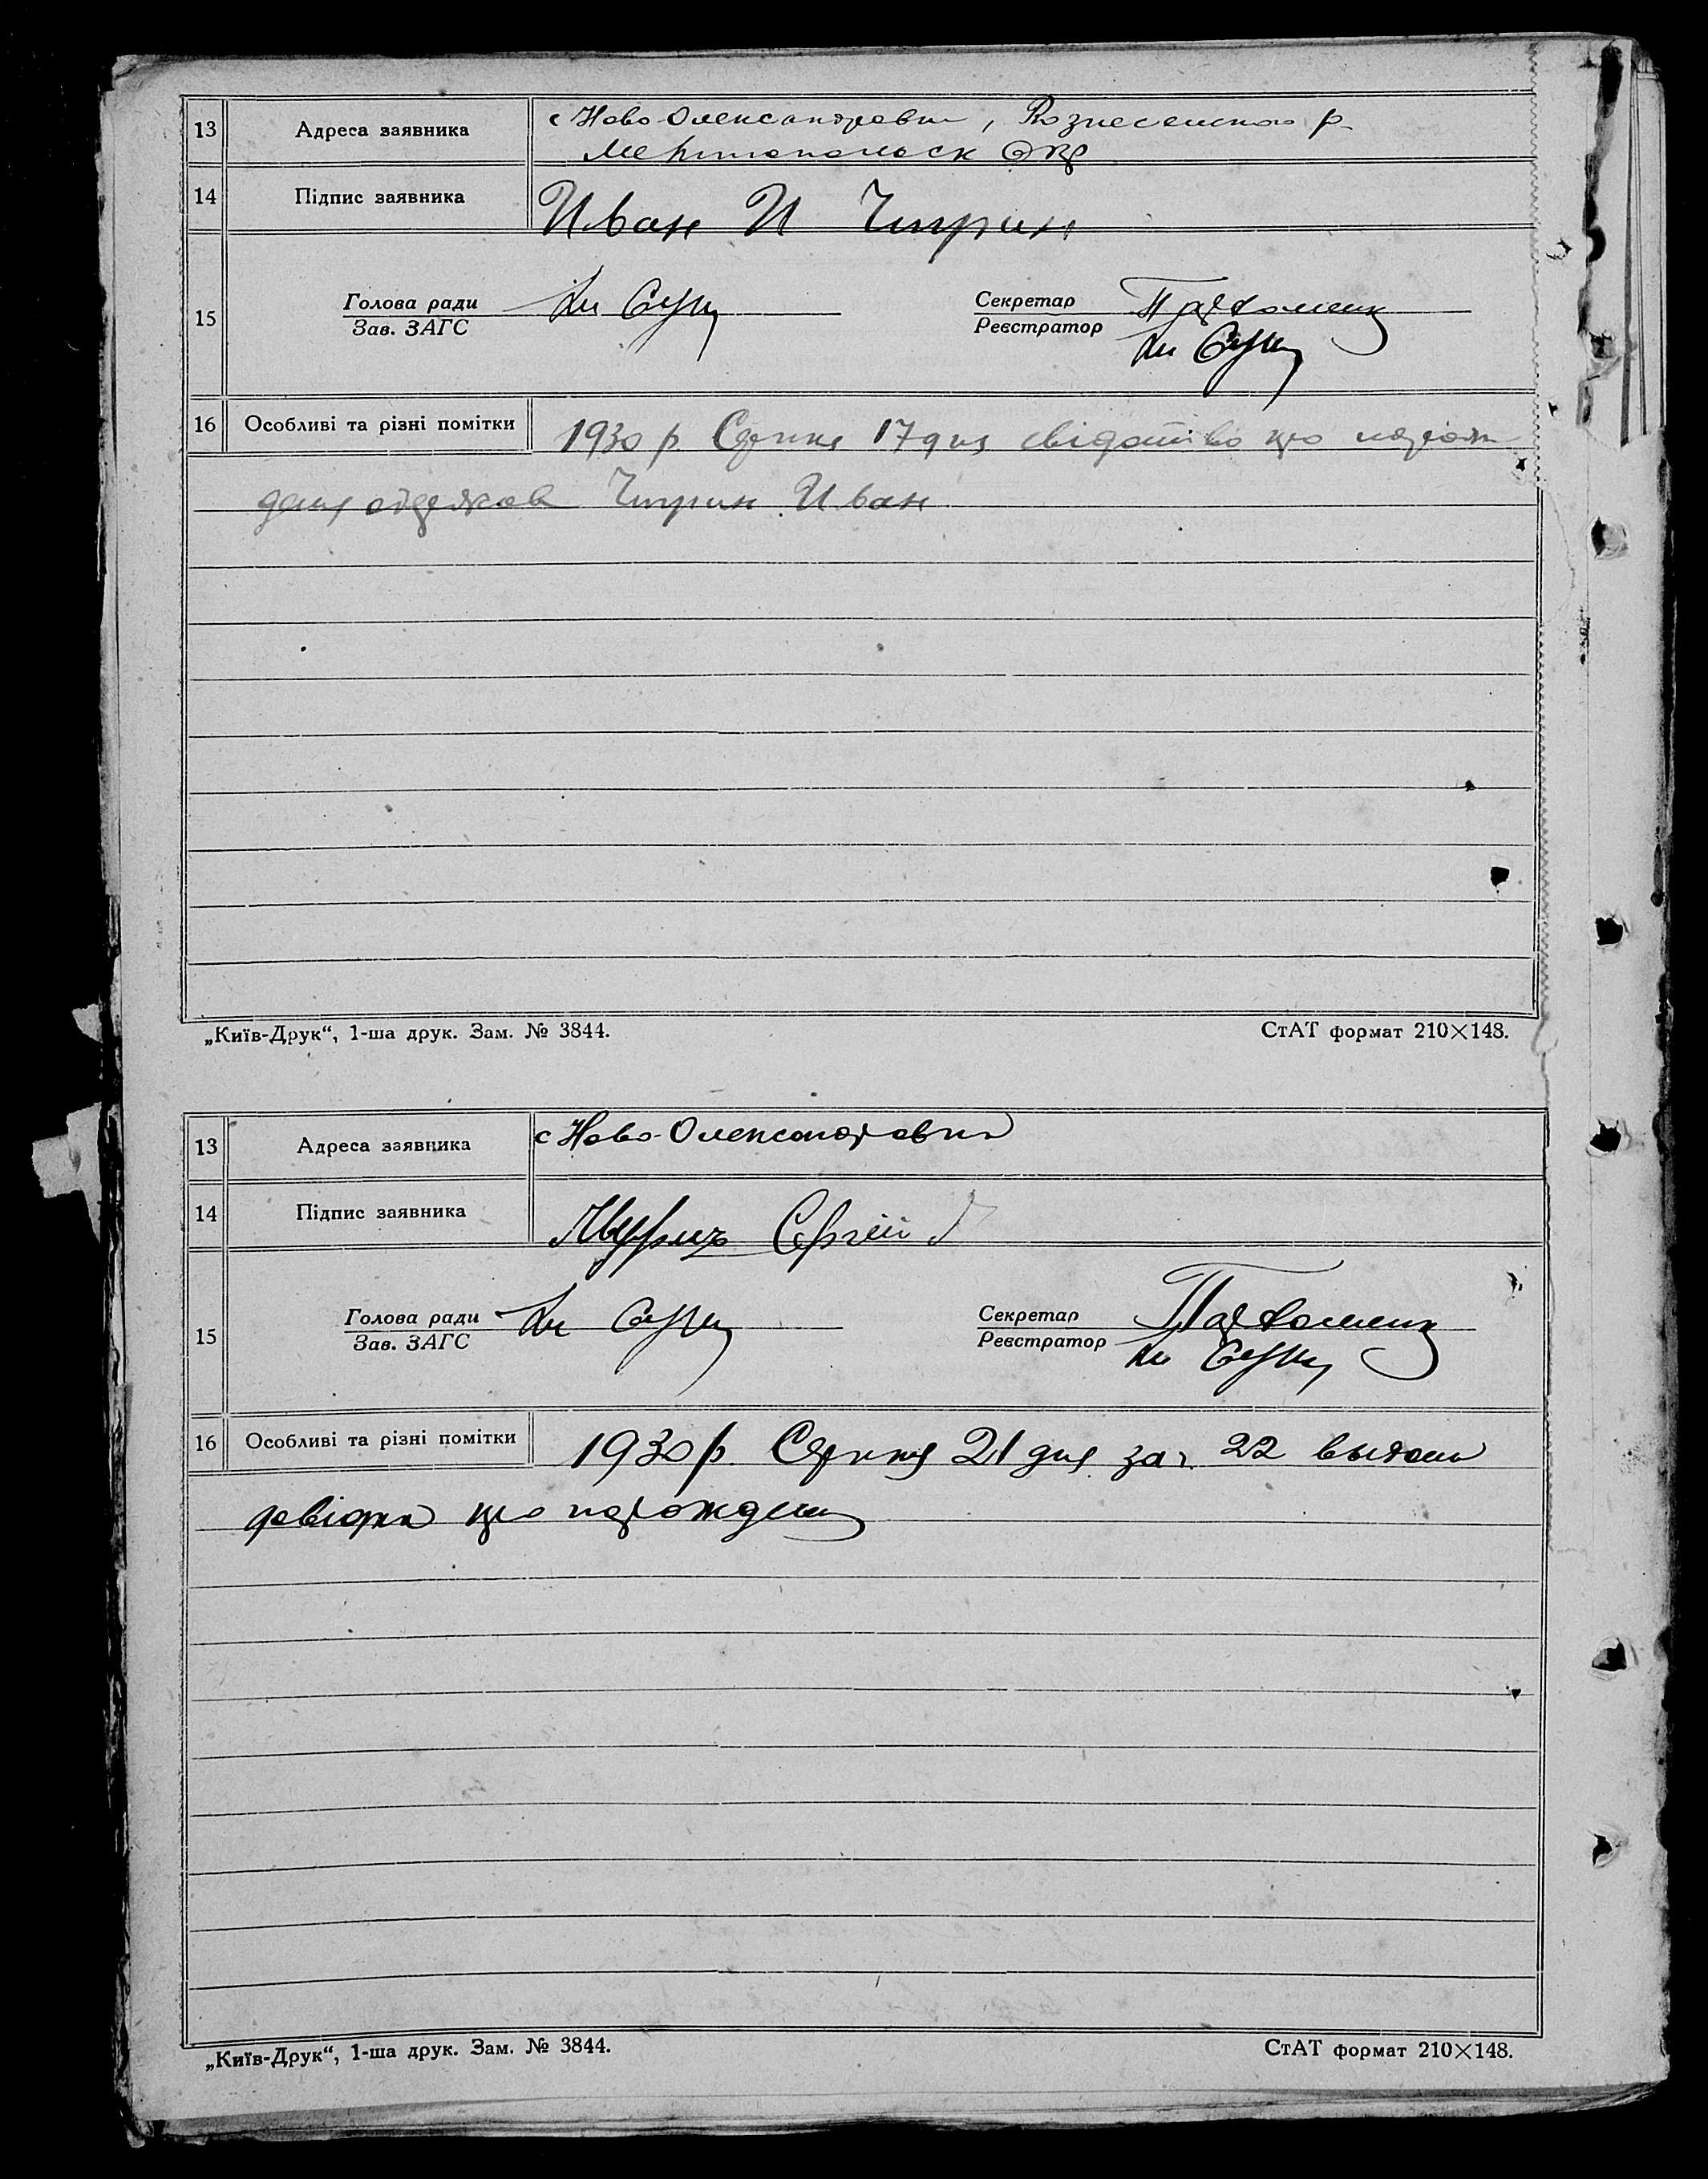 13 Адреса заявника с Ново-Олександровка, Вознесенського р.
Мелітопольськ Окр
14 Підпис заявника Иван И Чигрин
15 Голова ради Секретар Пархоменк
Зав. ЗАГС Реєстратор
16 Особливі та різні помітки 1930 р. Серпня 17 дня свідотство про нарож
деня одержав Чигрин Иван
„Київ-Друк“, 1-ша друк. Зам. № 3844. СтАТ формат 210×148.
13 Адреса заявника с Ново-Олександровка
14 Підпис заявника Сергій
15 Голова ради Секретар Пархоменк
Зав. ЗАГС Реєстратор
16 Особливі та різні помітки 1930 р. Серпня 21 дня за № 22 выдана
довідка про нарождены
„Київ-Друк“, 1-ша друк. Зам. № 3844. СтАТ формат 210×148.